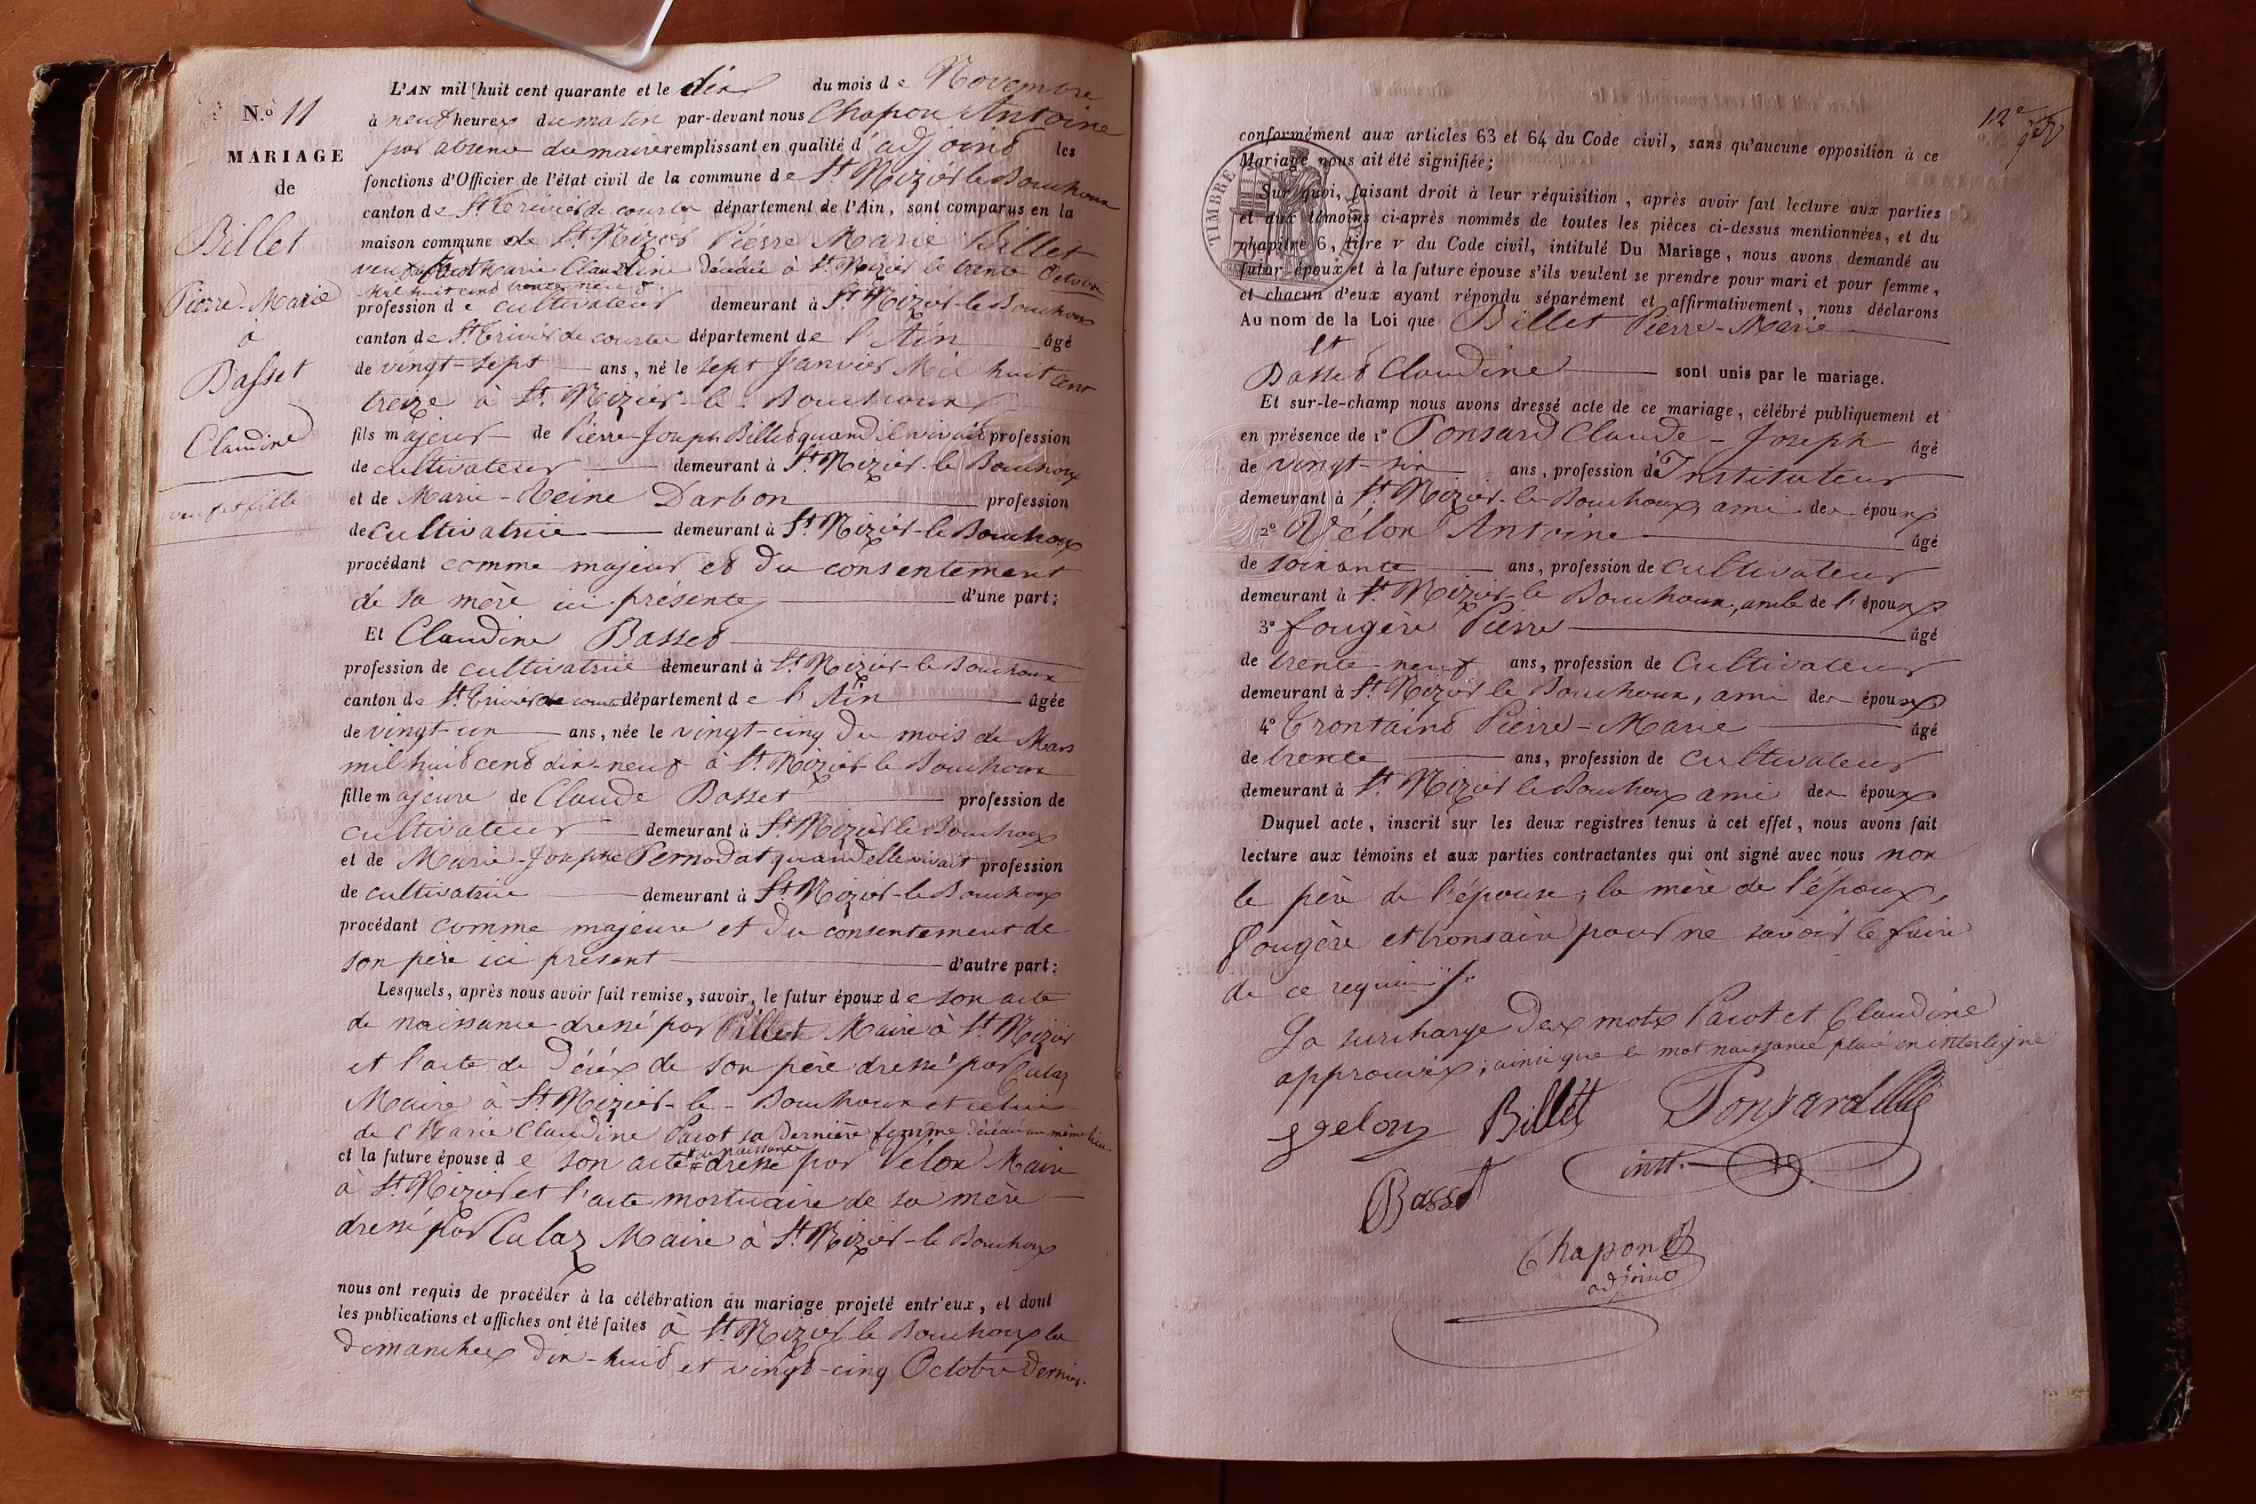 N.o 11
MARIAGE
de
Billet
Pierre-Marie
à
Basset
Claudine
veuf et fille
L'AN mil huit cent quarante et le dix du mois de Novembre
à neuf heures du matin par-devant nous Chapon Antoine
par absence du maire remplissant en qualité d'adjoint les
fonctions d'Officier de l'état civil de la commune de St Nizier le Bouchoux
canton de St Trivier de courtes département de l'Ain, sont comparus en la
maison commune de St Nizier Pierre Marie Billet
veuf de Pacot Marie Claudine décédée à St Nizier le trente Octobre
mil huit cent trente neuf
profession de cultivateur demeurant à St Nizier-le-Bouchoux
canton de St Trivier de courtes département de l'Ain âgé
de vingt-sept ans, né le sept Janvier Mil huit cent
treize à St Nizier-le-Bouchoux
fils majeur de Pierre-Joseph Billet quand il vivait profession
de cultivateur demeurant à St Nizier-le Bouchoux
et de Marie-Reine Darbon profession
de cultivatrice demeurant à St Nizier-le Bouchoux
procédant comme majeur et du consentement
de sa mère ici présente d'une part:
Et Claudine Basset
profession de cultivatrice demeurant à St Nizier-le Bouchoux
canton de St Trivier de courtes département de l'Ain âgée
de vingt-un ans, née le vingt-cinq du mois de Mars
mil huit cent dix-neuf à St Nizier-le Bouchoux
fille majeure de Claude Basset profession de
cultivateur demeurant à St Nizier le Bouchoux
et de Marie-Josephe Pernodat quand elle vivait profession
de cultivatrice demeurant à St Nizier-le Bouchoux
procédant comme majeure et du consentement de
son père ici présent d'autre part:
Lesquels, après nous avoir fait remise, savoir, le futur époux de son acte
de naissance dressé par Billet Maire à St Nizier
et l'acte de décès de son père dressé par Calaz
Maire à St Nizier-le-Bouchoux et celui
de Marie Claudine Pacot sa dernière femme décédée au même lieu.
et la future épouse de son acte de naissance dressé par Vélon Maire
à St Nizier et l'acte mortuaire de sa mère
dressé par Calaz Maire à St Nizier-le Bouchoux
nous ont requis de procéder à la célébration du mariage projeté entr'eux, et dont
les publications et affiches ont été faites à St Nizier le Bouchoux les
dimanches dix-huit et vingt-cinq Octobre dernier.
12e
TIMBRE ROYAL
conformément aux articles 63 et 64 du Code civil, sans qu'aucune opposition à ce
Mariage nous ait été signifiée;
Sur quoi, faisant droit à leur réquisition, après avoir fait lecture aux parties
et aux témoins ci-après nommés de toutes les pièces ci-dessus mentionnées, et du
chapitre 6, titre v du Code civil, intitulé Du Mariage, nous avons demandé au
futur époux et à la future épouse s'ils veulent se prendre pour mari et pour femme,
et chacun d'eux ayant répondu séparément et affirmativement, nous déclarons
Au nom de la Loi que Billet Pierre-Marie
Et
Basset Claudine sont unis par le mariage.
Et sur-le-champ nous avons dressé acte de ce mariage, célébré publiquement et
en présence de 1o Ponsard Claude-Joseph âgé
de vingt-six ans, profession d'Instituteur
demeurant à St Nizier-le-Bouchoux, ami des époux
2o Vélon Antoine âgé
de soixante ans, profession de cultivateur
demeurant à St Nizier-le Bouchoux, oncle de l'époux
3o fougère Pierre âgé
de trente-neuf ans, profession de cultivateur
demeurant à St Nizier le Bouchoux, ami des époux
4o Trontaind Pierre-Marie âgé
de trente ans, profession de cultivateur
demeurant à St Nizier le Bouchoux ami des époux
Duquel acte, inscrit sur les deux registres tenus à cet effet, nous avons fait
lecture aux témoins et aux parties contractantes qui ont signé avec nous non
le père de l'épouse, la mère de l'époux,
fougère et pour ne savoir le faire
de ce requis
La surcharge des mots Pacot et Claudine
approuvée; ainsi que le mot naissance placé en interligne
Velon Billet Ponsard
instr.
Basset
Chapon
adjoint